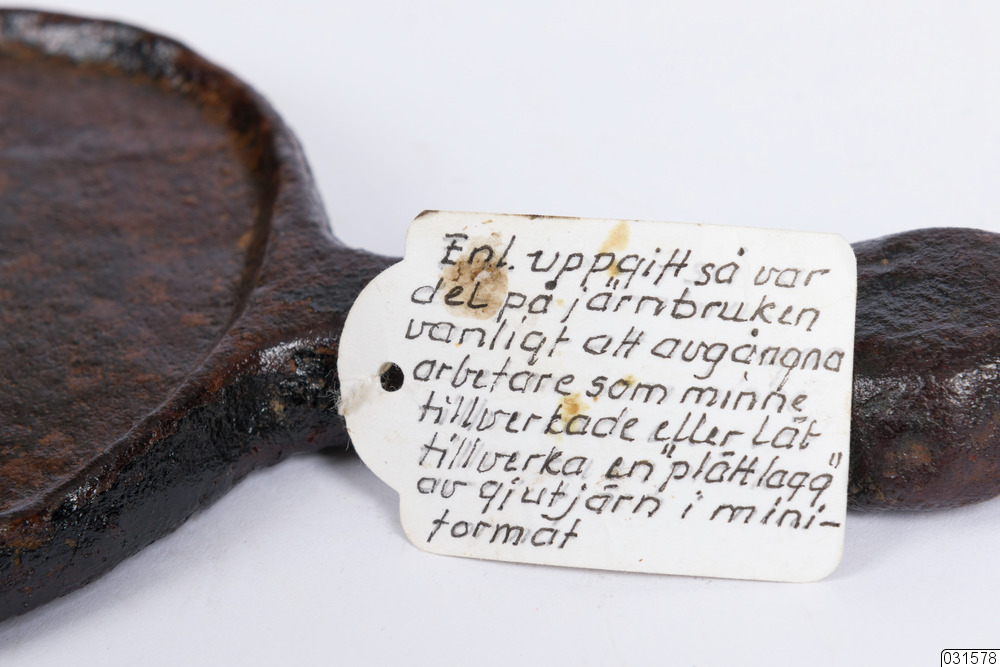 Enl. uppgift så var
det på järnbruken
vanligt att avgångna
arbetare som minne
tillverkade eller lät
tillverka en "plättlagg"
av gjutjärn i mini-
format
031578